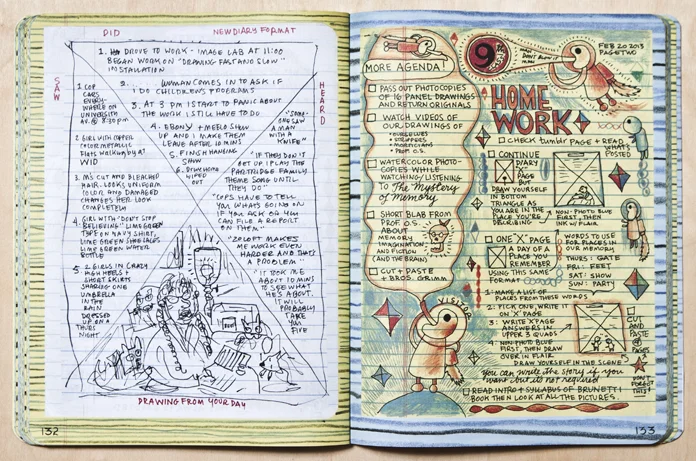 DID
NEW DIARY FORMAT
1. DROVE TO WORK - IMAGE LAB AT 11:00
BEGAN WORK ON "DRAWING FAST AND SLOW"
INSTALLATION
2. WOMAN COMES IN TO ASK IF
I DO CHILDREN'S PROGRAMS
3. AT 3 PM I START TO PANIC ABOUT
THE WORK I STILL HAVE TO DO
4. EBONY + MELO SHOW
UP AND I MAKE THEM
LEAVE AFTER 10 MINS
5. FINISH HANGING
SHOW
6. DRIVE HOME
WIPED
OUT
SAW
1 COP
CARS
EVERY-
WHERE ON
UNIVERSITY
AV. @ 8:30 PM
2 GIRL WITH COPPER
COLOR METALLIC
FLATS WALKING BY AT
WID
3. M'S CUT AND BLEACHED
HAIR. LOOKS UNIFORM
COLOR AND DAMAGED
CHANGES HER LOOK
COMPLETELY
4. GIRL WITH "DON'T STOP
BELIEVING" LIME GREEN
TYPE ON NAVY SHIRT,
LIME GREEN SHOE LACES
LIME GREEN WATER
BOTTLE
5. 2 GIRLS IN CRAZY
HIGH HEELS +
SHORT SKIRTS
SHARING ONE
UMBRELLA
IN THE
RAIN
DRESSED
UP ON A
THURS
NIGHT
HEARD
"SOME-
ONE SAW
A MAN
WITH A
KNIFE"
"IF THEY DON'T
GET UP I PLAY THE
PARTRIDGE FAMILY
THEME SONG UNTIL
THEY DO"
"COPS HAVE TO TELL
YOU WHAT'S GOING ON
IF YOU ASK OR YOU
CAN FILE A REPORT
ON THEM"
"ZOLOFT MAKES
ME WORK EVEN
HARDER AND THAT'S
A PROBLEM"
"IT TOOK ME
ABOUT 10 MINS
TO SEE WHAT
HE'S ABOUT.
IT WILL
PROBABLY
TAKE
YOU
FIVE
DRAWING FROM YOUR DAY
132
MORE AGENDA!
PASS OUT PHOTOCOPIES
OF 16 PANEL DRAWINGS
AND RETURN ORIGINALS
WATCH VIDEOS OF
OUR DRAWINGS OF
OURSELVES
STRIPPERS
MORTICIANS
PROF. O.S.
WATERCOLOR PHOTO-
COPIES WHILE
WATCHING/LISTENING
TO The Mystery
of Memory
SHORT BLAB FROM
PROF O.S.
ABOUT
MEMORY
IMAGINATION
AND FICTION
AND THE BRAIN
CUT + PASTE
+ BROS. GRIMM
9
DON'T BLOW IT
FEB 20 2013
PAGE TWO
HOME
WORK
CHECK tumblr PAGE + READ
WHAT'S
POSTED
CONTINUE
DIARY
PAGE
BUT
DRAW YOURSELF
IN BOTTOM
TRIANGLE AS
YOU ARE IN THE
PLACE YOU'RE
DESCRIBING
NON-PHOTO BLUE
FIRST, THEN
INK W/FLAIR
ONE 'X' PAGE
A DAY OF A
PLACE YOU
REMEMBER
USING THIS SAME
FORMAT
WORDS TO USE
FOR PLACES IN
OUR MEMORY
THURS: GATE
FRI: FEET
SAT: SHOW
SUN: PARTY
1: MAKE A LIST OF
PLACES FROM THESE WORDS
2: PICK ONE WRITE IT
ON 'X' PAGE
3: WRITE 'X' PAGE
ANSWERS IN
UPPER 3 QUADS
4: NON-PHOTO BLUE
FIRST, THEN DRAW
OVER IN FLAIR
DRAW YOURSELF IN THE SCENE
CUT
AND
PASTE
PAGES
DON'T
FORGOT
THIS!
You can write the story if you
want but it's not required
READ INTRO + SYLLABUS OF BRUNETTI
BOOK THEN LOOK AT ALL THE PICTURES.
VISITOR
133